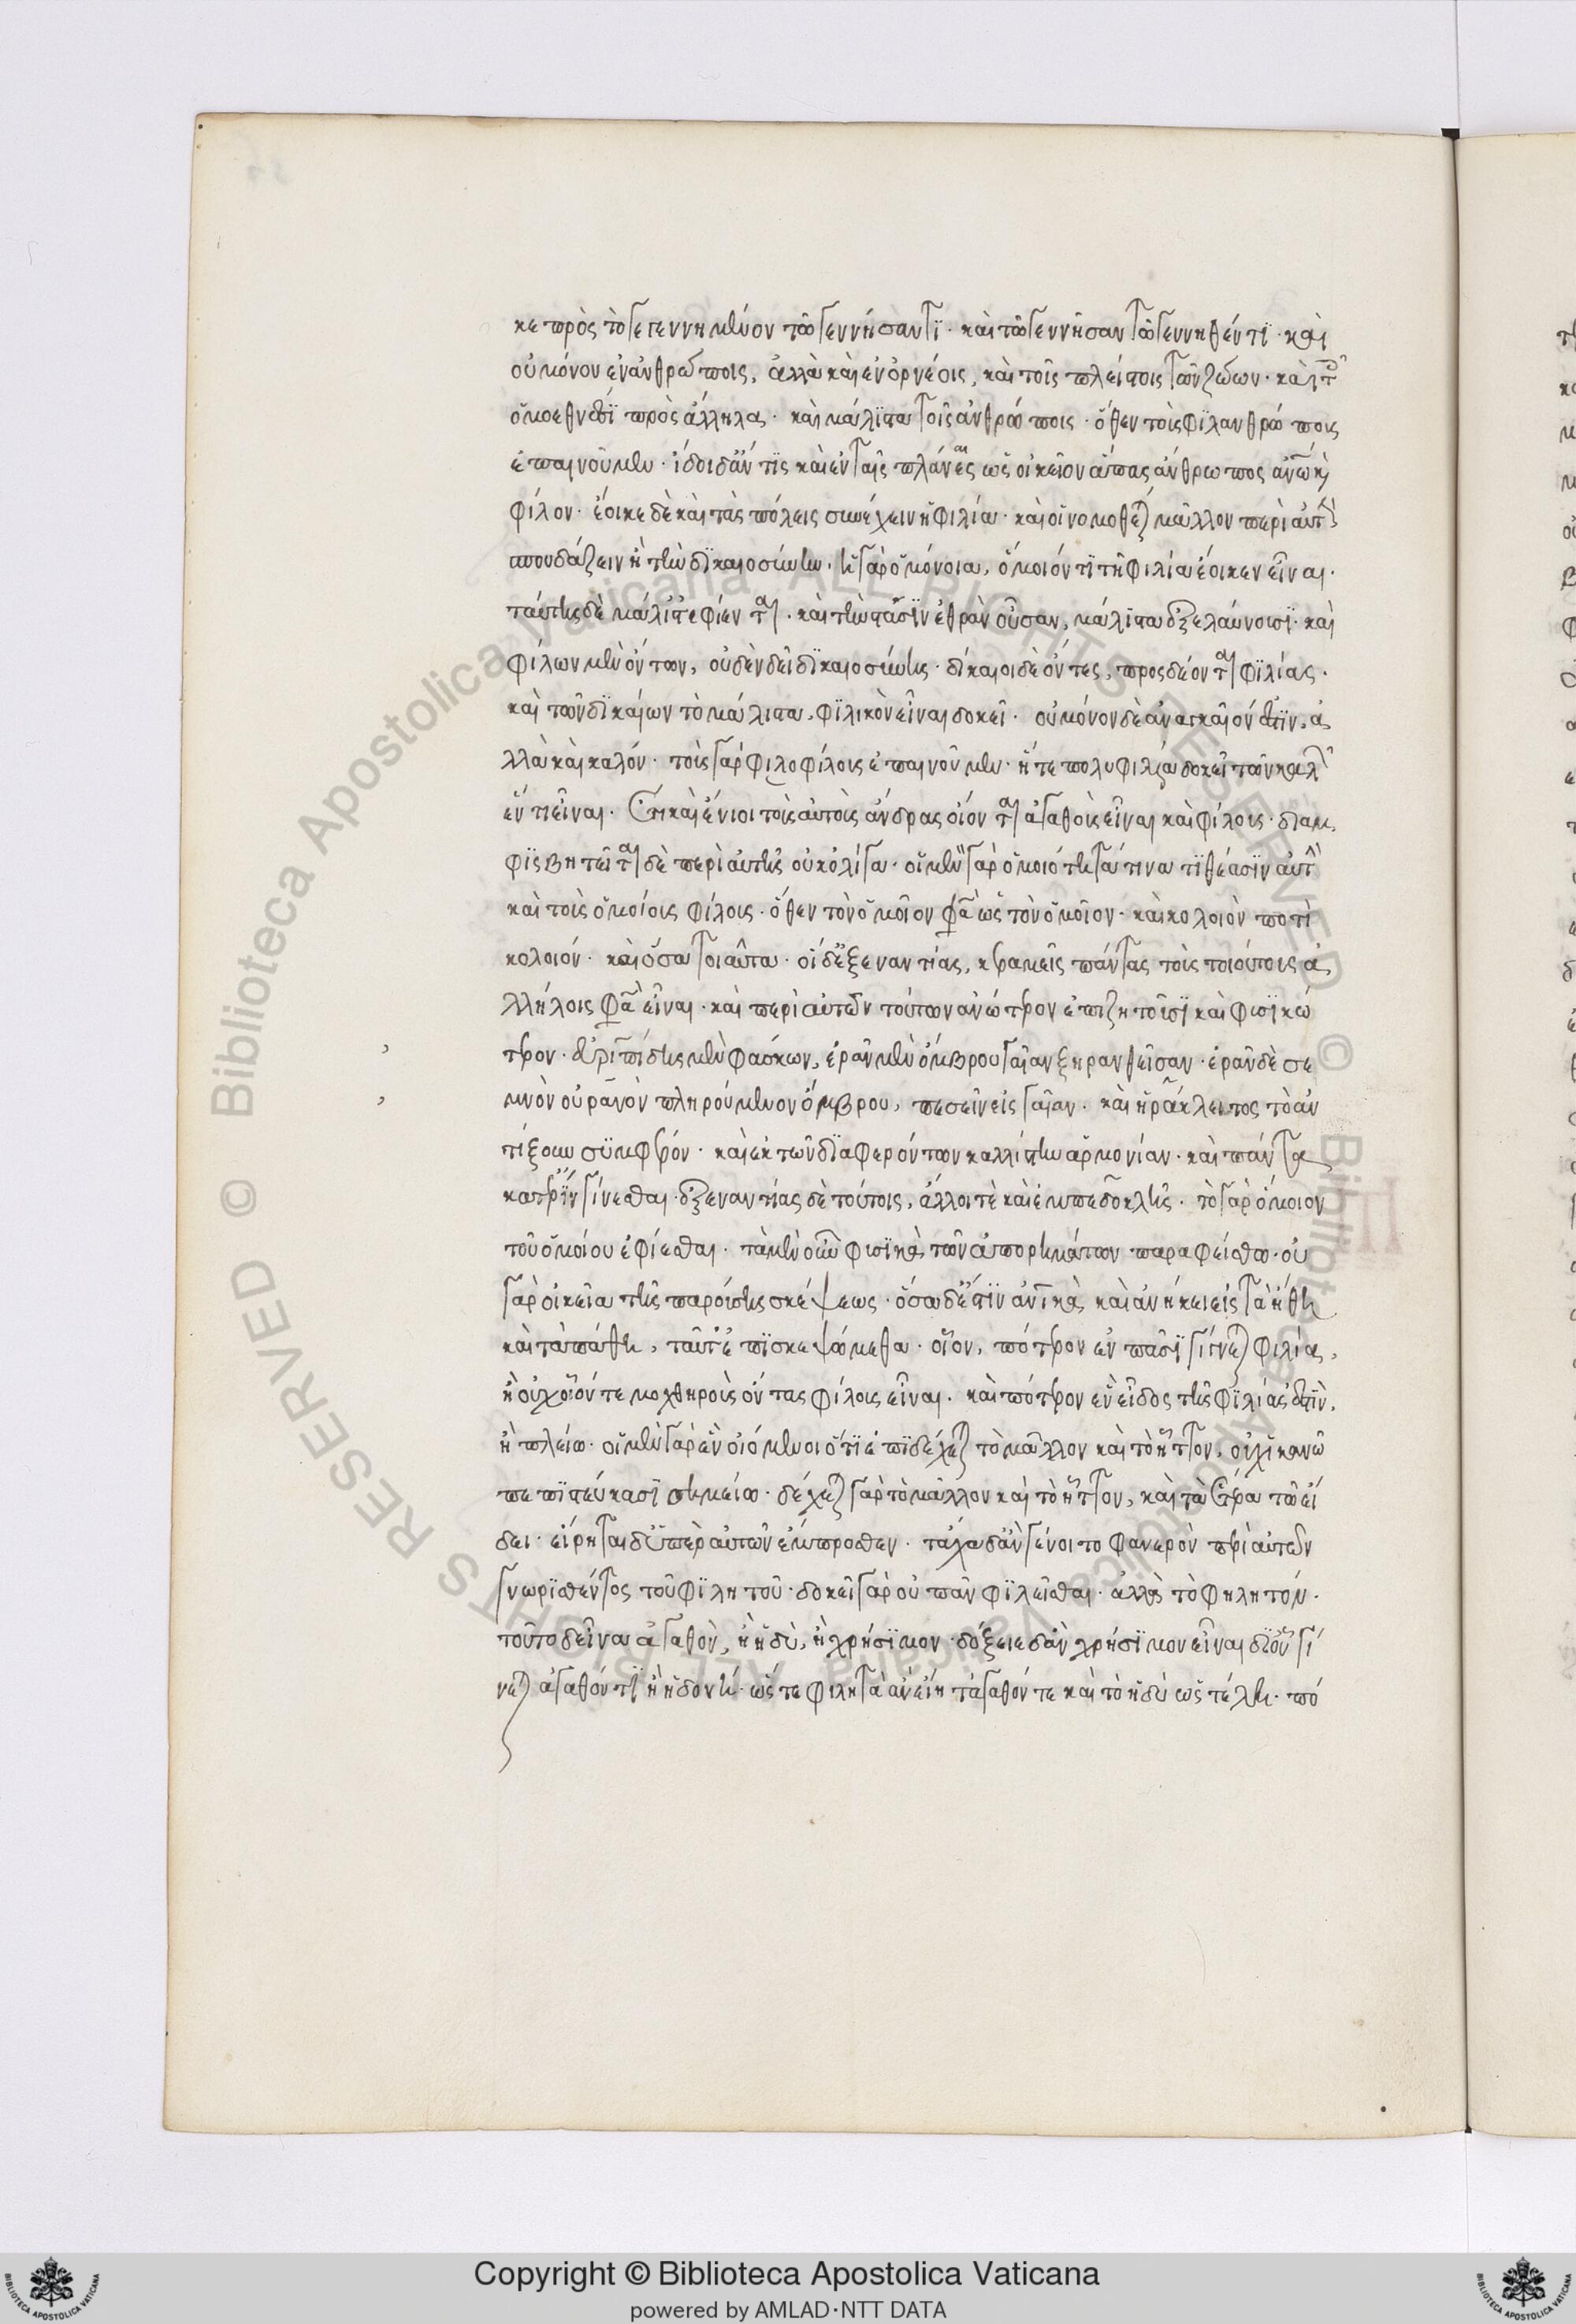 κε πρὸς τὸ γεγεννημένον τῶ γεννήσαντι· καὶ τῶ γεννῆσαν τῶ γεννηθέντι· καὶ
οὐ μόνον ἐν ἀνθρώποις, ἀλλὰ καὶ ἐν ὀρνέοις, καὶ τοῖς πλείστοις τῶν ζώων· καὶ τῶ
ὁμοεθνέσι πρὸς ἄλληλα· καὶ μάλιστα τοῖς ἀνθρώποις· ὅθεν τοὺς φιλανθρώπους
ἐπαινοῦμεν· ἴδοι δἄν τις καὶ ἐν ταῖς πλάναις ὡς οἰκεῖον ἅπας ἄνθρωπος ἀνω καὶ
φίλον· ἔοικε δὲ καὶ τὰς πόλεις συνέχειν ἡ φιλία· καὶ οἱ νομοθέται μᾶλλον περὶ αὐτὴν
σπουδάζειν ἢ τὴν δικαιοσύνην· ἡ γὰρ ὁμόνοια, ὅμοιόν τι τῆ φιλία ἔοικεν εἶναι·
ταύτης δὲ μάλιστ ἐφίενται· καὶ τὴν στάσιν ἐχθρὰν οὖσαν, μάλιστα ἐξελαύνουσι· καὶ
φίλων μὲν ὄντων, οὐδὲν δεῖ δικαιοσύνης· δίκαιοι δὲ ὄντες, προσδέονται φιλίας·
καὶ τῶν δικαίων τὸ μάλιστα, φιλικὸν εἶναι δοκεῖ· οὐ μόνον δὲ ἀναγκαῖόν ἐστιν, ἀ
λλὰ καὶ καλόν· τοὺς γὰρ φιλοφίλους ἐπαινοῦμεν· ἥ τε πολυφιλία δοκεῖ τῶν καλῶν
ἕν τι εἶναι· ἔτι καὶ ἔνιοι τοὺς αὐτοὺς ἄνδρας οἴονται ἀγαθοὺς εἶναι καὶ φίλους· διαμ
φισβητεῖται δὲ περὶ αὐτῆς οὐκ ὀλίγα· οἱ μὲν γὰρ ὁμοιότητά τινα τιθέασιν αὐτὴν
καὶ τοὺς ὁμοίους φίλους· ὅθεν τὸν ὁμοῖον φασὶν ὡς τὸν ὁμοῖον· καὶ κολοιὸν ποτὶ
κολοιόν· καὶ ὅσα τοιαῦτα· οἱ δἐξεναντίας, κεραμεῖς πάντας τοὺς τοιούτους ἀ
λλήλοις φασὶν εἶναι· καὶ περὶ αὐτῶν τούτων ἀνώτερον ἐπιζητοῦσι καὶ φυσικώ
τερον· εὐριπίδης μὲν φάσκων, ἐρᾶν μὲν ὄμβρου γαῖαν ξηρανθεῖσαν· ἐρᾶν δὲ σε
μνὸν οὐρανὸν πληρούμενον ὄμβρου, πεσεῖν εἰς γαῖαν· καὶ ἡράκλειτος τὸ ἀν
τίξουν συμφέρον· καὶ ἐκ τῶν διαφερόντων καλλίστην ἁρμονίαν· καὶ πάντα
κατἔριν γίνεσθαι· ἐξεναντίας δὲ τούτοις, ἄλλοι τὲ καὶ ἐμπεδοκλῆς· τὸ γὰρ ὅμοιον
τοῦ ὁμοίου ἐφίεσθαι· τὰ μὲν οὖν φυσικὰ τῶν ἀπορημάτων παραφείσθω· οὐ
γὰρ οἰκεῖα τῆς παρούσης σκέψεως· ὅσα δἐστὶν ἀνικὰ καὶ ἀνήκει εἰς τὰ ἤθη
καὶ τὰ πάθη, ταῦτ ἐπισκεψώμεθα· οἷον, πότερον ἐν πᾶσι γίγνεται φιλία,
ἢ οὐχοἷόν τε μοχθηροὺς ὄντας φίλους εἶναι· καὶ πότερον ἓν εἶδος τῆς φιλίας ἐστὶν,
ἢ πλείω· οἱ μὲν γὰρ ἓν οἰόμενοι ὅτι ἐπιδέχεται τὸ μᾶλλον καὶ τὸ ἧττον, οὐχ ἱκανῶ
πεπιστεύκασι σημείω· δέχεται γὰρ τὸ μᾶλλον καὶ τὸ ἧττον, καὶ τὰ ἕτερα τῶ εἴ
δει· εἴρηται δὑπὲρ αὐτῶν ἔμπροσθεν· τάχα δἂν γένοιτο φανερὸν περὶ αὐτῶν
γνωρισθέντος τοῦ φιλητοῦ· δοκεῖ γὰρ οὐ πᾶν φιλεῖσθαι· ἀλλὰ τὸ φηλητόν·
τοῦτο δεῖναι ἀγαθὸν, ἢ ἡδὺ, ἢ χρήσιμον· δόξειε δἂν χρήσιμον εἶναι διοὗ γί
νεται ἀγαθόν τι ἢ ἡδονή· ὥστε φιλητὰ ἂν εἴη τἀγαθόν τε καὶ τὸ ἡδὺ ὡς τέλη· πό
Copyright © Biblioteca Apostolica Vaticana
powered by AMLAD·NTT DATA